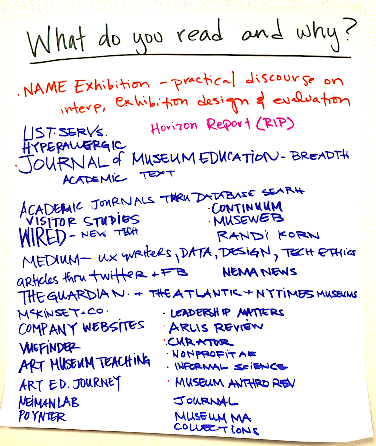 What do you read and why?
. NAME Exhibition - practical discourse on
interp, exhibition design & evaluation
Horizon Report (RIP)
LIST SERVS.
HYPERALLERGIC
. JOURNAL of MUSEUM EDUCATION - BREADTH
ACADEMIC TEXT
ACADEMIC JOURNALS THRU DATABASE SEARH
VISITOR STUDIES
. CONTINUUM
WIRED - NEW TECH
. MUSEWEB
RANDI KORN
MEDIUM - UX writers, DATA, DESIGN, TECH ETHICS
articles thru twitter + FB
NEMA NEWS
THE GUARDIAN. + THE ATLANTIC + NYTIMES MUSEUMS
MCKINSEY-CO.
. LEADERSHIP MATTERS
COMPANY WEBSITES
. ARLIS REVIEW
. CURATOR
. NONPROFIT AF
ART MUSEUM TEACHING
. INFORMAL SCIENCE
ART ED. JOURNEY
. MUSEUM ANTHRO REV
NEIMAN LAB
JOURNAL
POYNTER
MUSEUM MA
COLLECTIONS